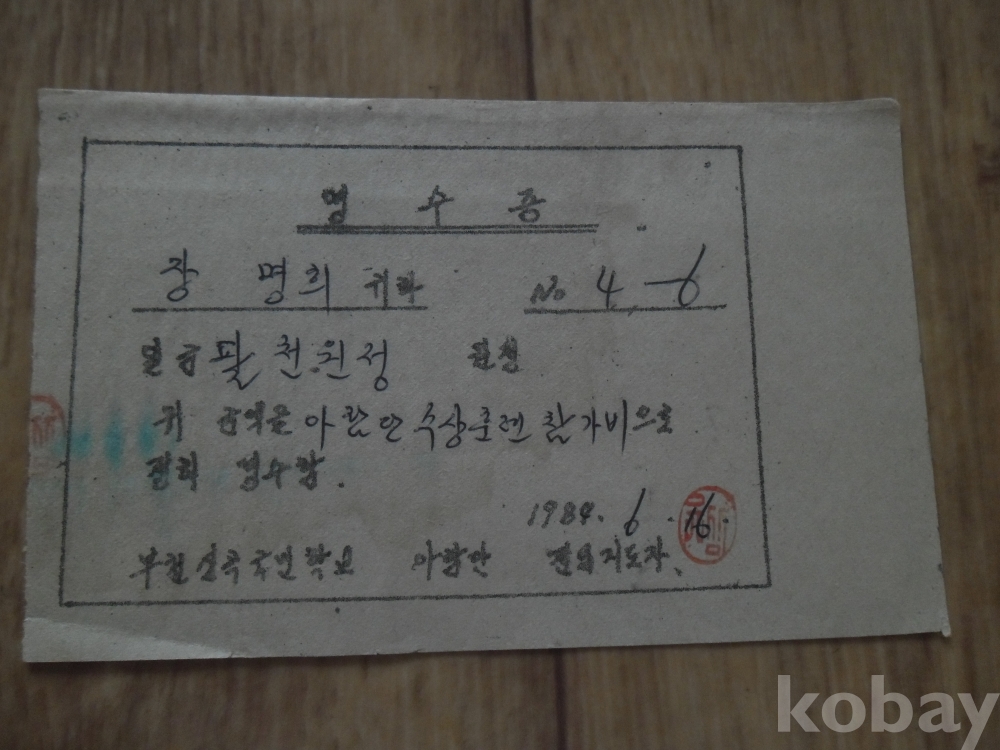 영 수 증
장 명희 귀하 No 4-6
일금 팔천원정 원정
위 금액을 아람단 수상훈련 참가비으로
정히 영수함.
1984. 6. 16.
부천신곡국민학교 아람단 전임지도자
kobay